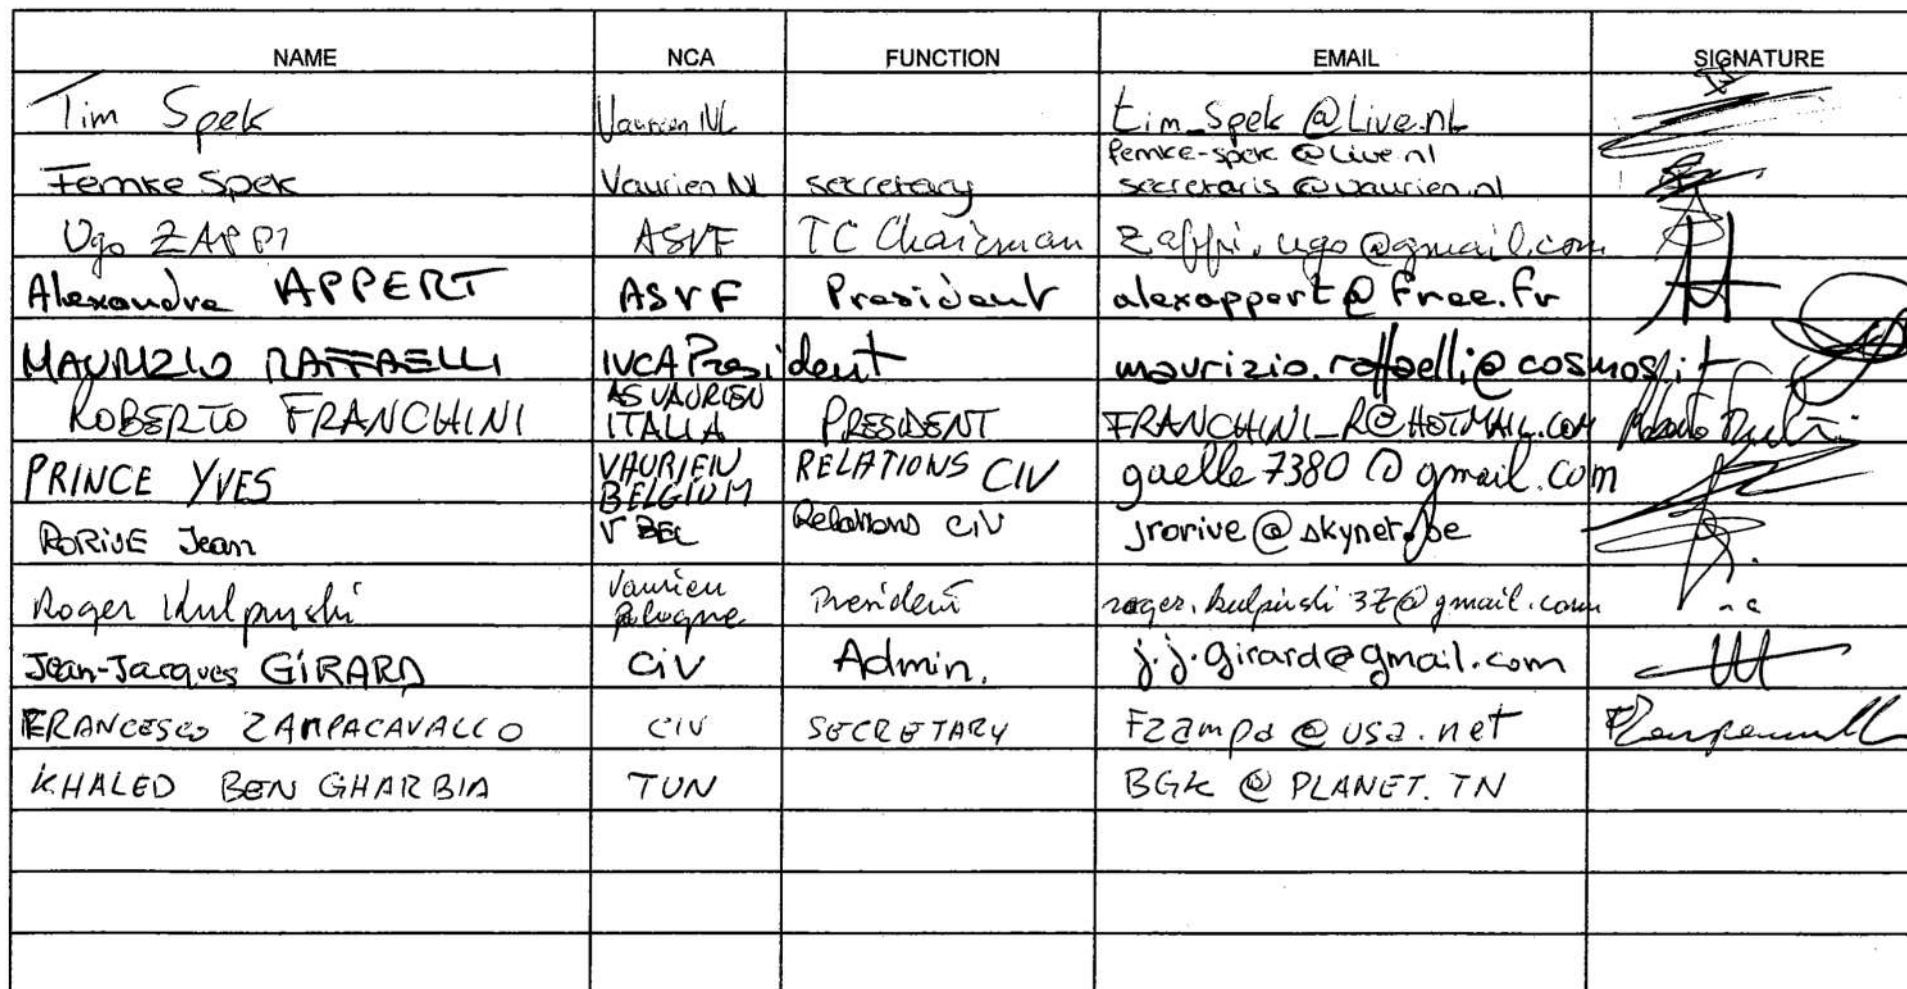 NAME NCA FUNCTION EMAIL SIGNATURE
Tim Spek Vaurien NL tim_spek@live.nl
femke-spek@live.nl
Femke Spek Vaurien NL secretary secretaris@vaurien.nl
Ugo ZAPPI ASVF TC Chairman zappi.ugo@gmail.com
Alexandre APPERT ASVF President alexappert@free.fr
MAURIZIO RAFFAELLI IVCA President maurizio.raffaelli@cosmos.it
AS VAURIEN
ROBERTO FRANCHINI ITALIA PRESIDENT FRANCHINI_R@HOTMAIL.COM
PRINCE YVES VAURIEN RELATIONS CIV gaelle7380@gmail.com
BELGIUM
RORIVE Jean V BEL Relations CIV jrorive@skynet.be
Vaurien
Roger Kulpinski Pologne President roger.kulpinski37@gmail.com
Jean-Jacques GIRARD CIV Admin. j.j.girard@gmail.com
FRANCESCO ZAMPACAVALLO CIV SECRETARY Fzampa@usa.net
KHALED BEN GHARBIA TUN BGK@PLANET.TN